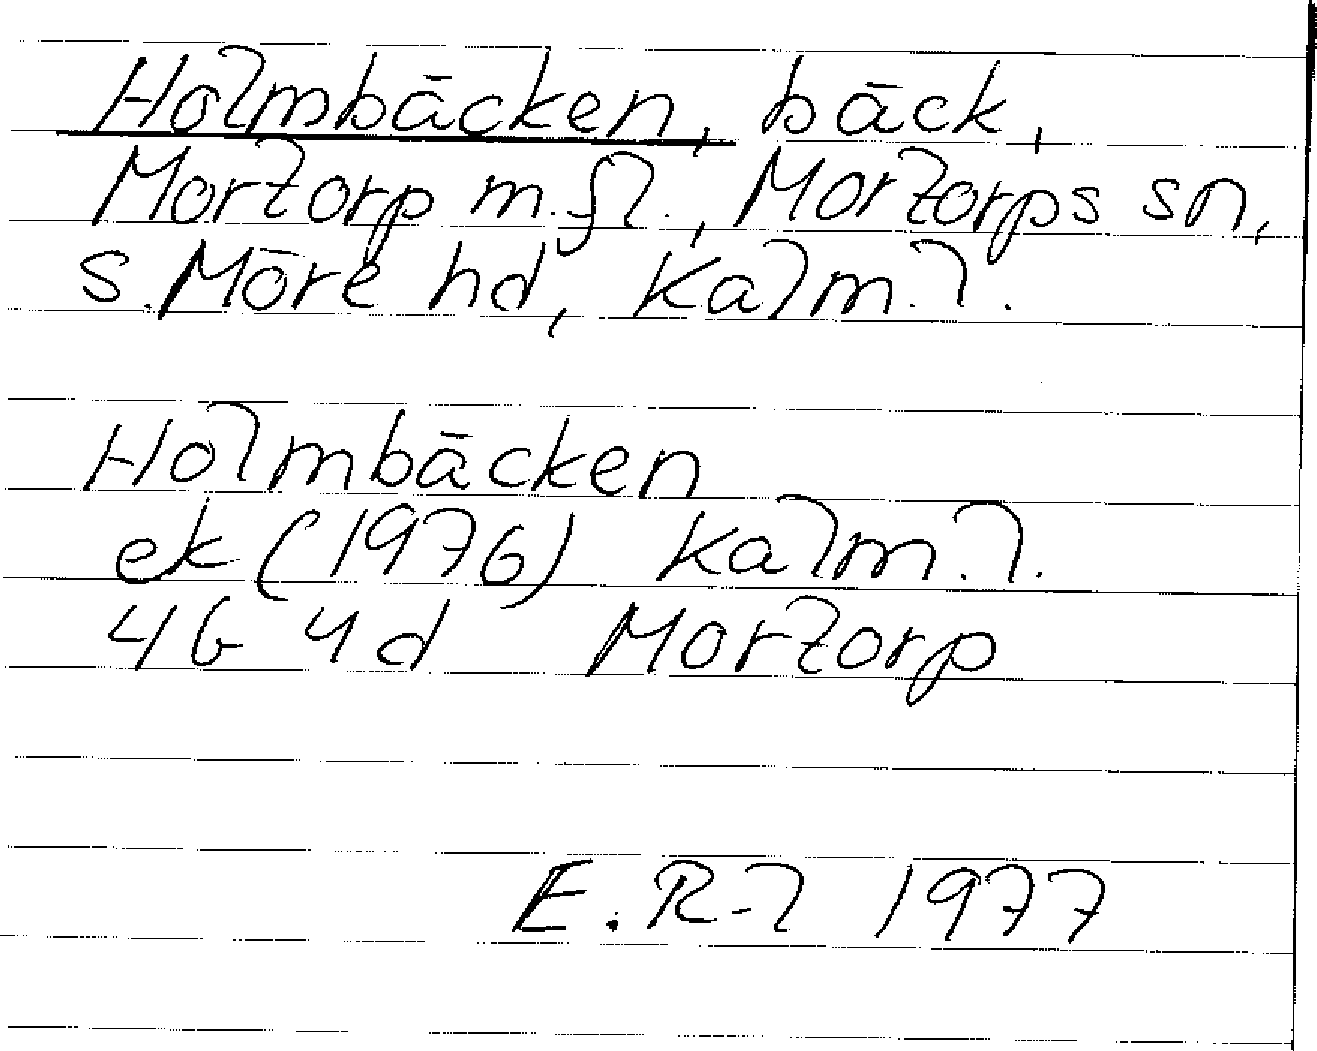 Holmbäcken, bäck,
Mortorp m.fl., Mortorps sn,
S. Möre hd, Kalm.l.
Holmbäcken
ek (1976) Kalm.l.
4G 4d Mortorp
E.R-l 1977